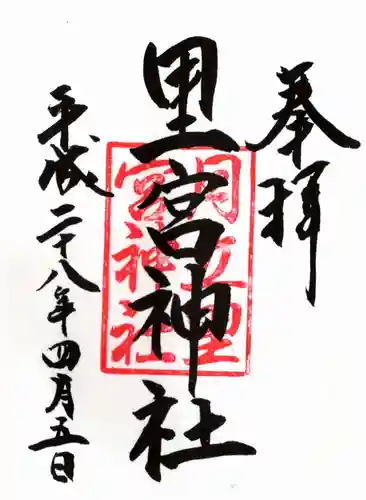 奉拝
里宮神社
平成二十八年四月五日